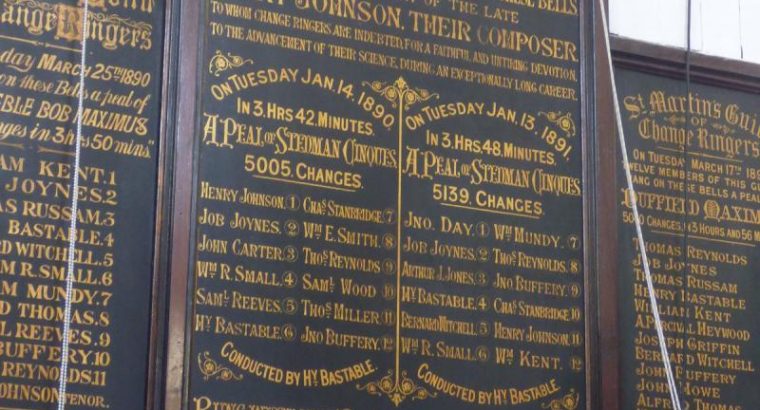 Change Ringers
day March 25th 1890
on these Bells a peal of
Treble Bob Maximus
changes in 3 hrs 50 mins.
Kent.1
Joynes.2
Russam.3
Bastable.4
Witchell.5
R.Small.6
Mundy.7
8
Reeves.9
Buffery.10
Reynolds.11
Johnson Tenor.
Bells
of the late
Johnson, their Composer
to whom change ringers are indebted, for a faithful and untiring devotion,
to the advancement of their science, during an exceptionally long career.
On Tuesday Jan. 14. 1890.
In 3. Hrs 42. Minutes.
A Peal of Stedman Cinques
5005. Changes.
Henry Johnson. 1 Chas Stanbridge. 7
Job Joynes. 2 Wm E. Smith. 8
John Carter. 3 Thos Reynolds 9
Wm R. Small. 4 Saml Wood 10
Saml Reeves. 5 Thos Miller. 11
Hy Bastable. 6 Jno Buffery. 12
Conducted by Hy Bastable.
On Tuesday Jan. 13. 1891.
In 3. Hrs. 48. Minutes.
A Peal of Stedman Cinques
5139. Changes.
Jno. Day. 1 Wm Mundy. 7
Job Joynes. 2 Thos Reynolds. 8
Arthur J. Jones. 3 Jno Buffery. 9
Hy Bastable. 4 Chas Stanbridge. 10
Bernard Witchell. 5 Henry Johnson. 11
Wm R. Small. 6 Wm Kent. 12
Conducted by Hy Bastable
St Martin's Guild
of
Change Ringers
On Tuesday March 17th
Twelve members of this
rang on these bells a peal
Duffield Maxim
Changes, in 3 hours and 56
Thomas Reynolds
Job Joynes
Thomas Russam
Henry Bastable
William Kent
A. Percival Heywood
Joseph Griffin
Bernard Witchell
John Buffery
John Howe
Alfred Thomas